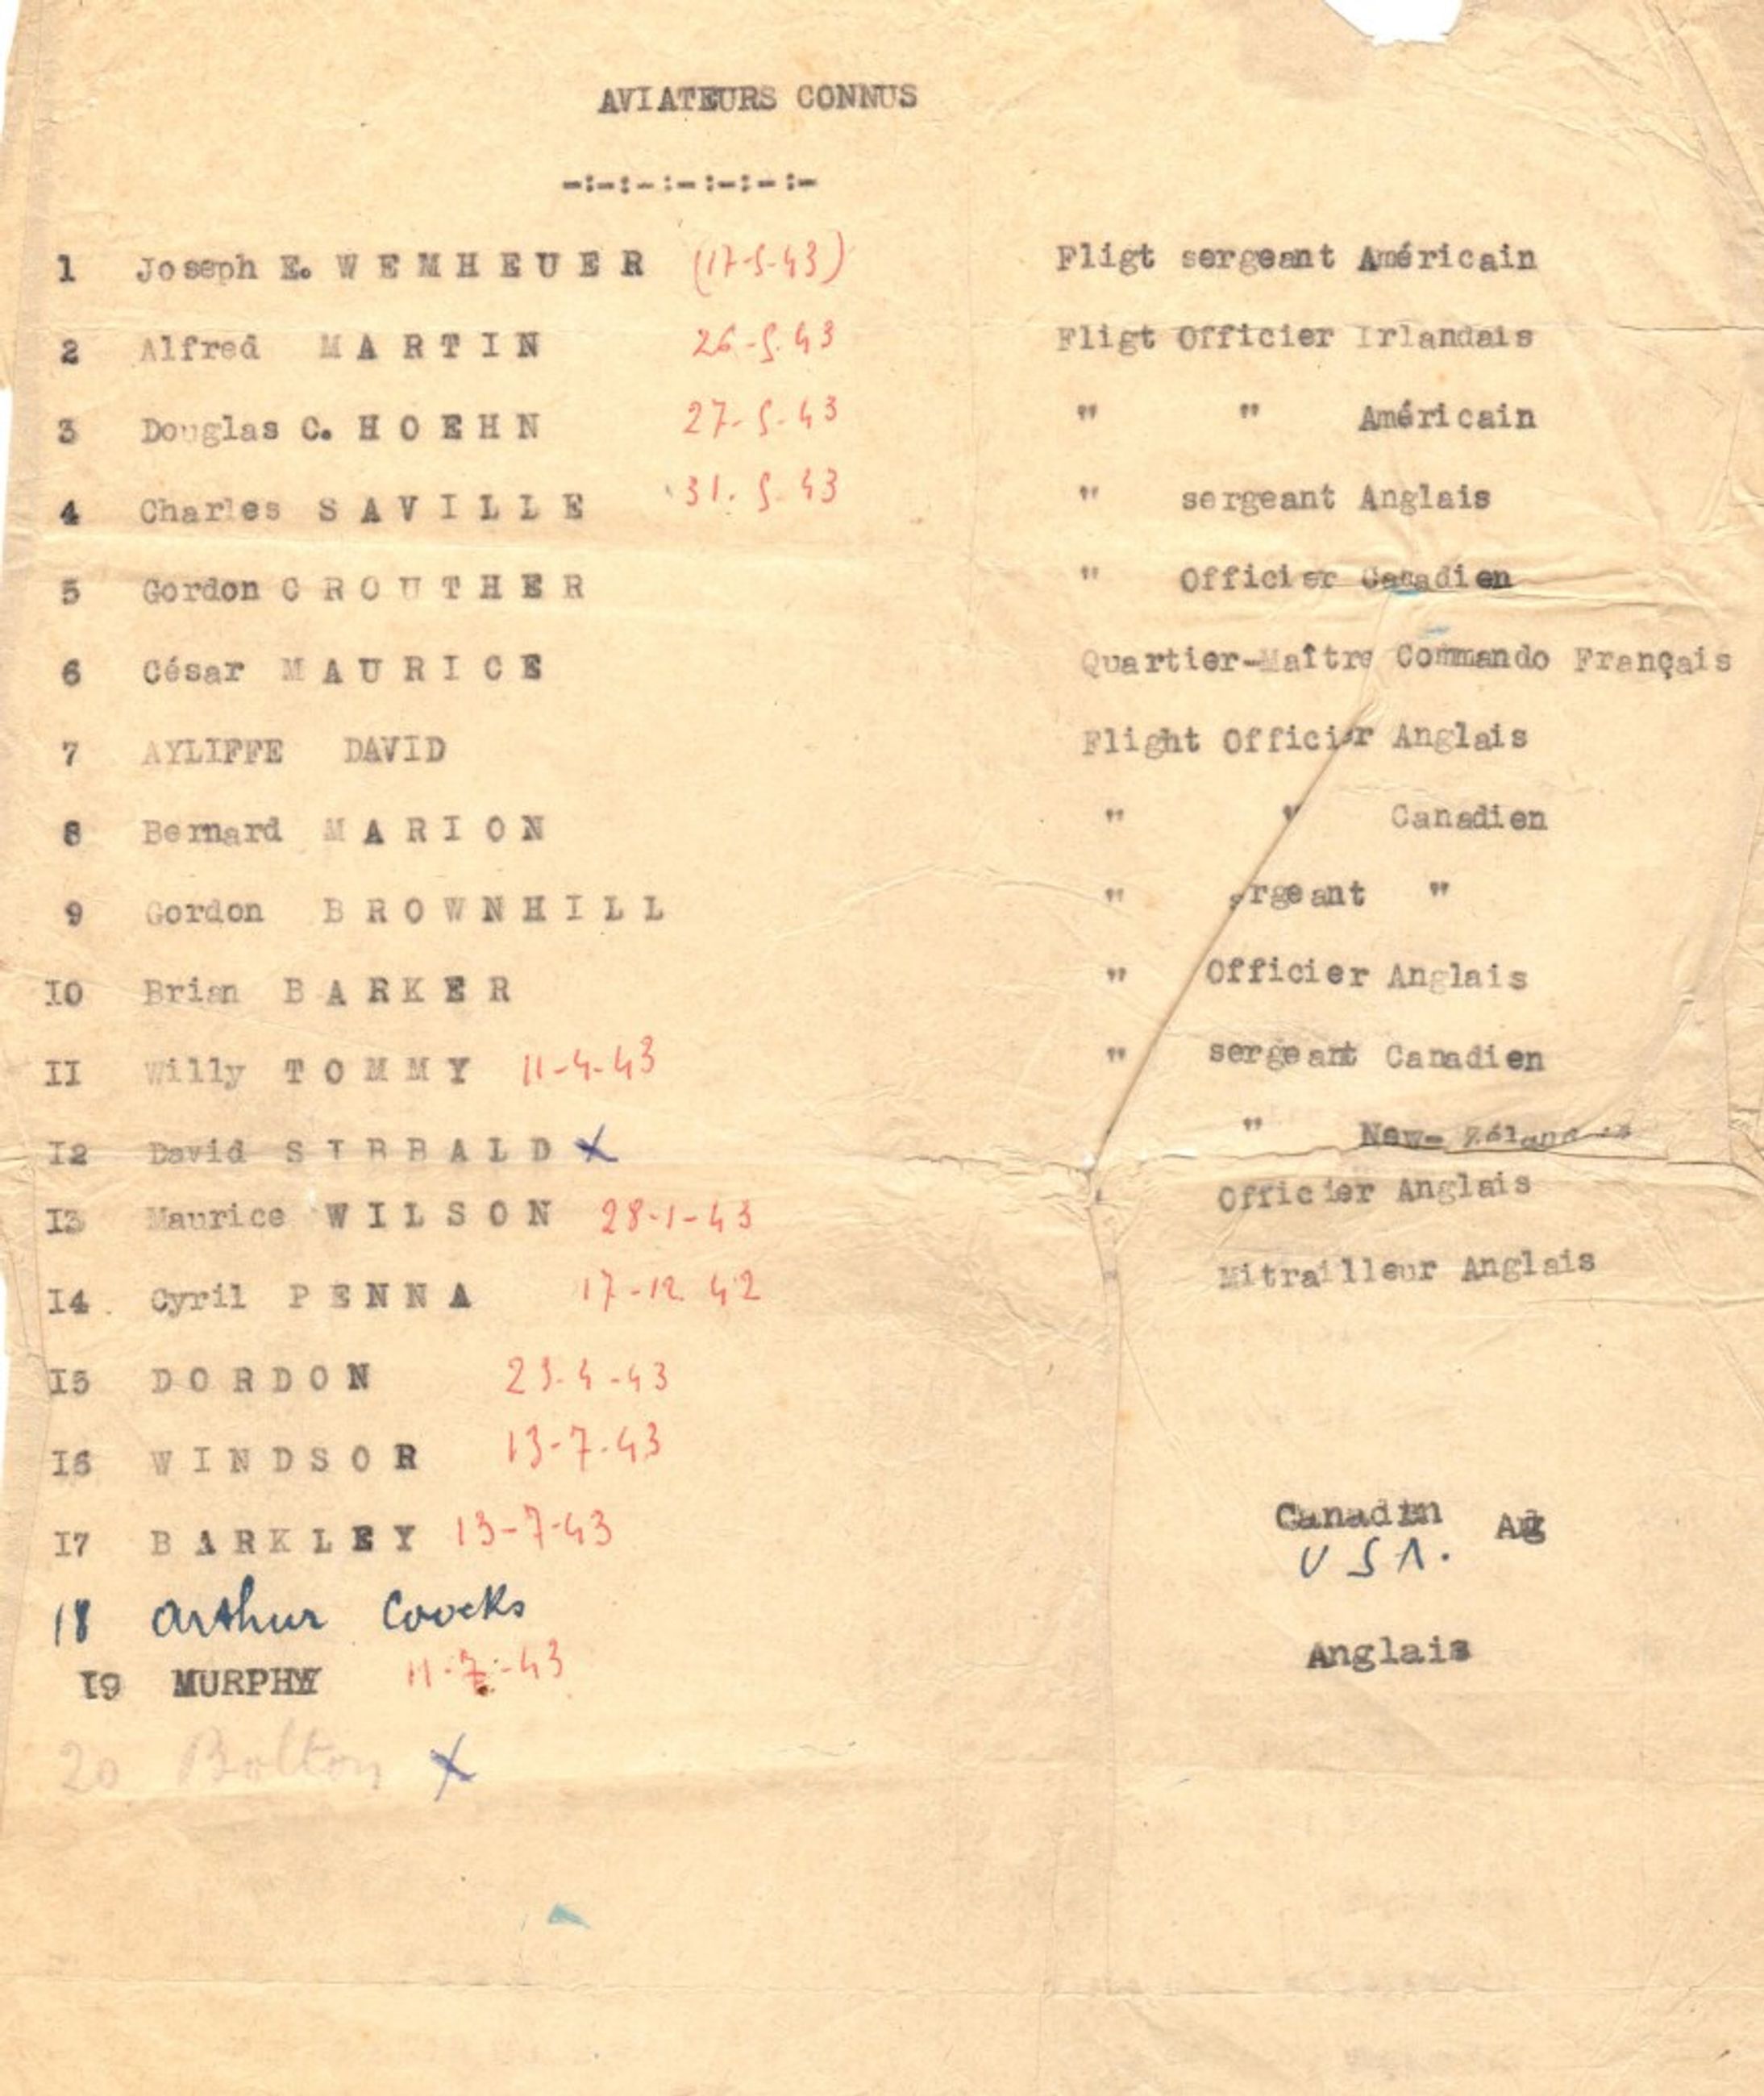 AVIATEURS CONNUS
-:-:-:-:-:-:-
1 Joseph E. WEMHEUER (17-5-43) Fligt sergeant Américain
2 Alfred MARTIN 26-5.43 Fligt Officier Irlandais
3 Douglas C. HOEHN 27-5-43 " " Américain
4 Charles SAVILLE 31.5.43 " sergeant Anglais
5 Gordon CROUTHER " Officier Canadien
6 César MAURICE Quartier-Maître Commando Français
7 AYLIFFE DAVID Flight Officier Anglais
8 Bernard MARION " " Canadien
9 Gordon BROWNHILL " ergeant "
I0 Brian BARKER " Officier Anglais
II Willy TOMMY 11-4-43 " sergeant Canadien
I2 David SIBBALD X " New-
I3 Maurice WILSON 28-1-43 Officier Anglais
I4. Cyril PENNA 17-12.42 Mitrailleur Anglais
I5 DORDON 23.4-43
I6 WINDSOR 13-7-43
I7 BARKLEY 13-7-43 Canadien
18 Arthur Coocks USA.
I9 MURPHY 11-7-43 Anglais
20 Bolton X